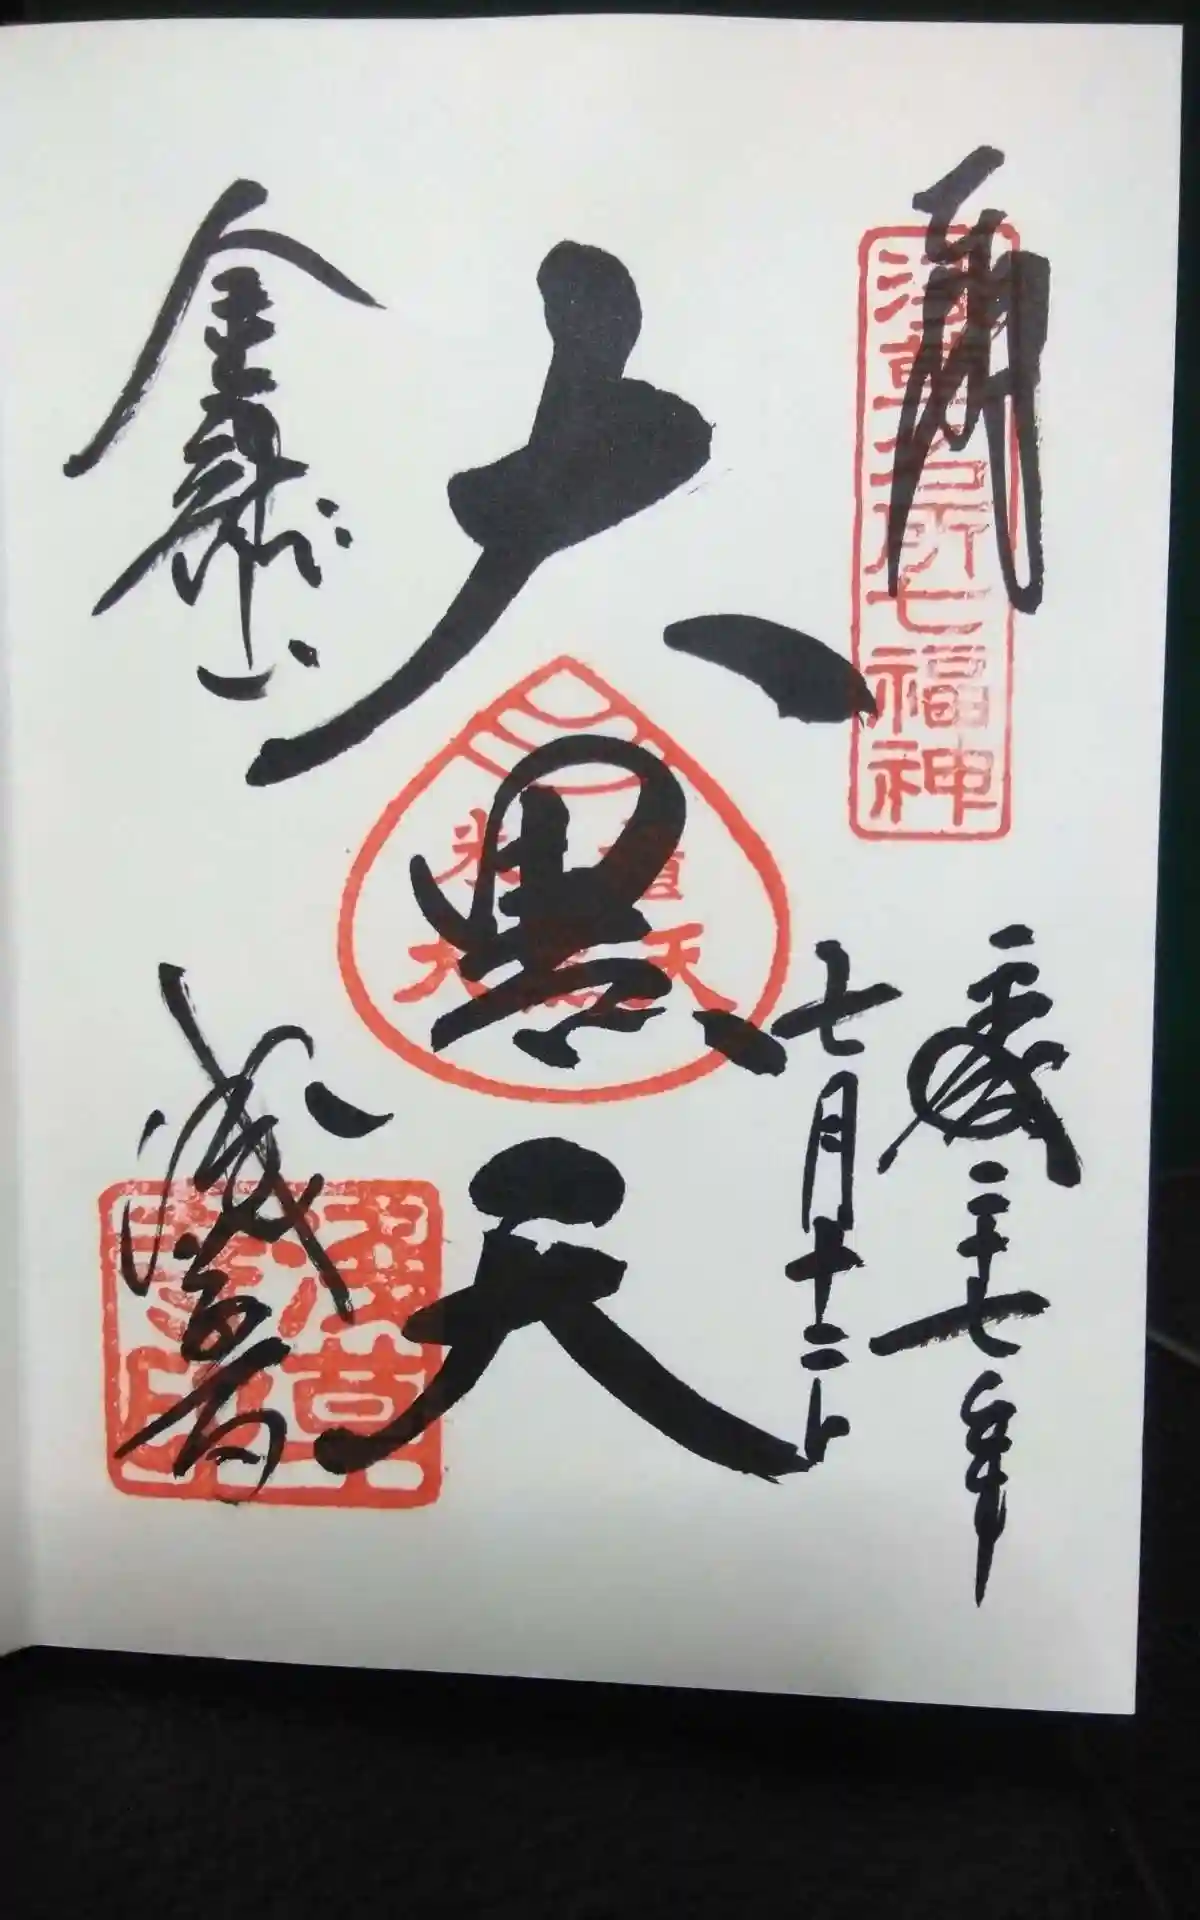 奉拝
浅草名所七福神
平成二十七年
七月十二日
大黒天
米櫃
大黒天
金龍山
浅草寺
浅草
寺印